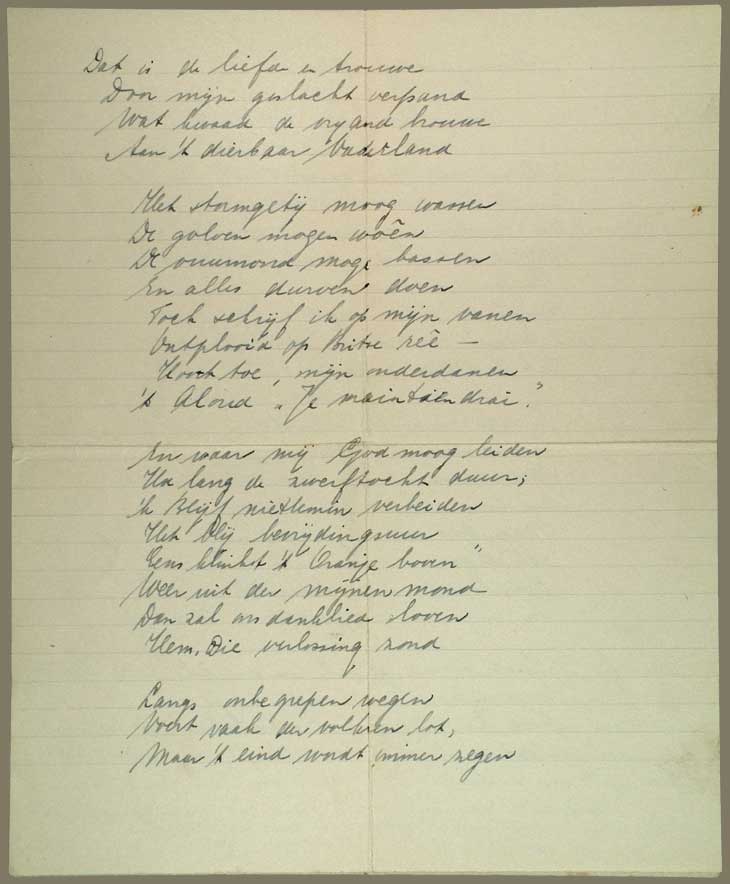 Dat is de liefde en trouwe
Door mijn geslacht verpand
Wat kwaad de vyand brouwe
Aan 't dierbaar Vaderland
Het stormgetij moog wassen
De golven mogen woên
De vuurmond moge bassen
En alles durven doen
Toch schrijf ik op mijn vanen
Ontplooid op Britse zeê —
Hoort toe, mijn onderdanen
't Aloud „Je maintiendrai."
En waar mij God moog leiden
Hoe lang de zwerftocht duur;
'k Blijf niettemin verbeiden
Het blij bevrijdingsuur
Eens klinkt 't Oranje boven"
Weer uit der mijnen mond
Dan zal ons danklied loven
Hem, Die verlossing zond
Langs onbegrepen wegen
Voert vaak der volkren lot,
Maar 't eind wordt immer zegen